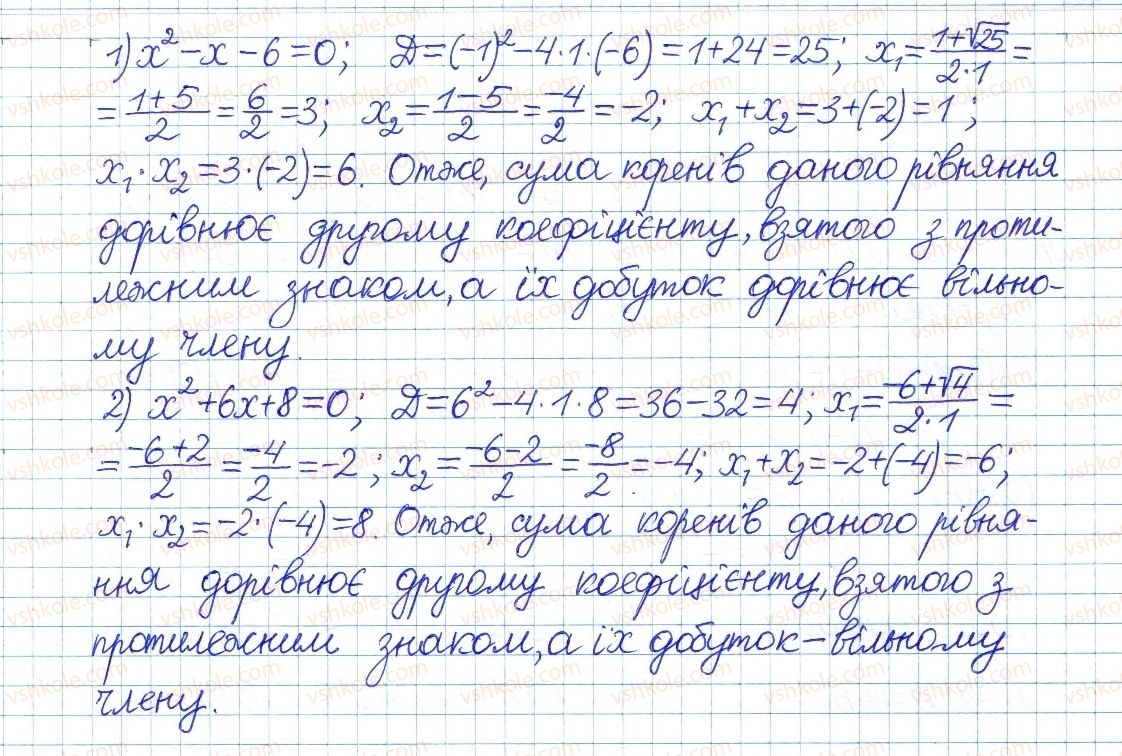 1) x² − x − 6 = 0; Д = (−1)² − 4·1·(−6) = 1 + 24 = 25; x₁ = (1+√25)/(2·1) =
= (1+5)/2 = 6/2 = 3; x₂ = (1−5)/2 = −4/2 = −2; x₁ + x₂ = 3 + (−2) = 1;
x₁ · x₂ = 3 · (−2) = 6. Отже, сума коренів даного рівняння
дорівнює другому коефіцієнту, взятого з проти-
лежним знаком, а їх добуток дорівнює вільно-
му члену.
2) x² + 6x + 8 = 0; Д = 6² − 4·1·8 = 36 − 32 = 4; x₁ = (−6+√4)/(2·1) =
= (−6+2)/2 = −4/2 = −2; x₂ = (−6−2)/2 = −8/2 = −4; x₁ + x₂ = −2 + (−4) = −6;
x₁ · x₂ = −2 · (−4) = 8. Отже, сума коренів даного рівня-
ння дорівнює другому коефіцієнту, взятого з
протилежним знаком, а їх добуток – вільному
члену.